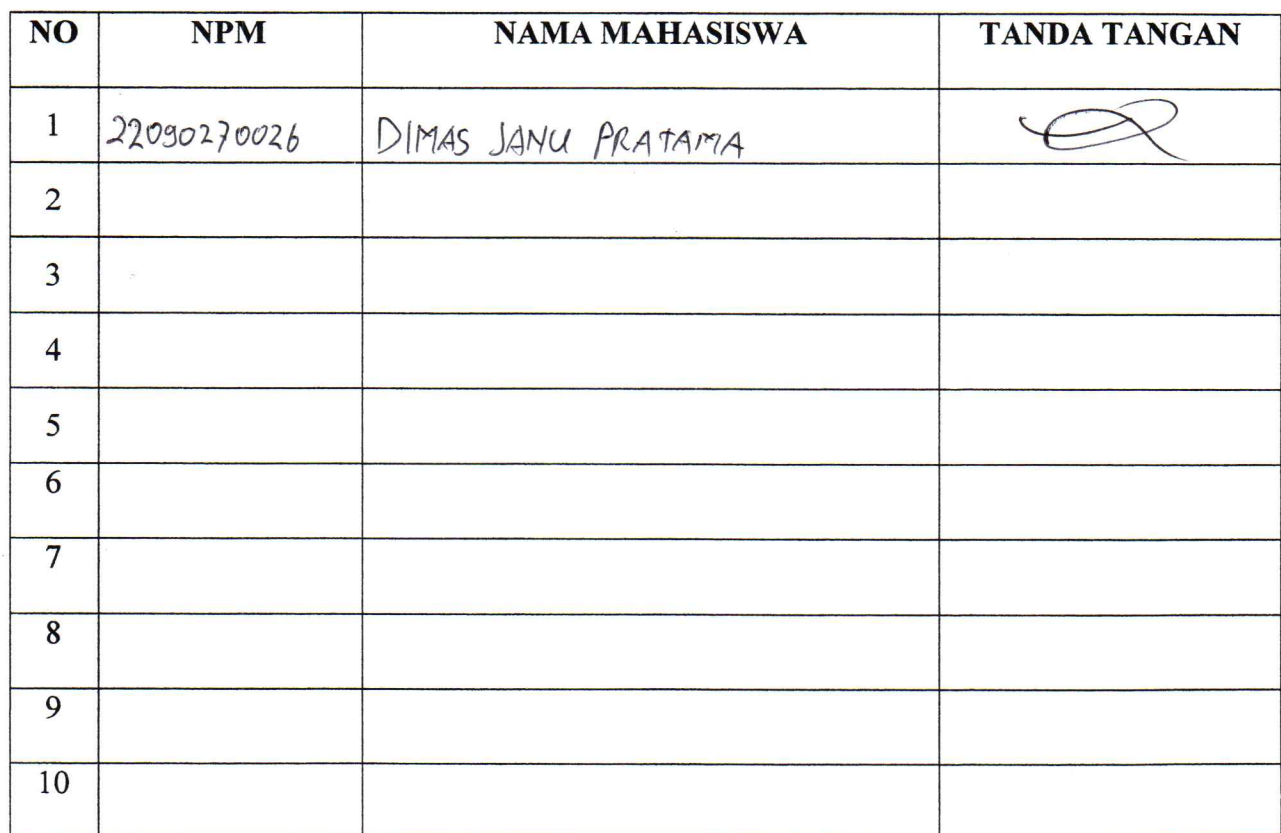 NO NPM NAMA MAHASISWA TANDA TANGAN
1 22090270026 DIMAS JANU PRATAMA
2
3
4
5
6
7
8
9
10